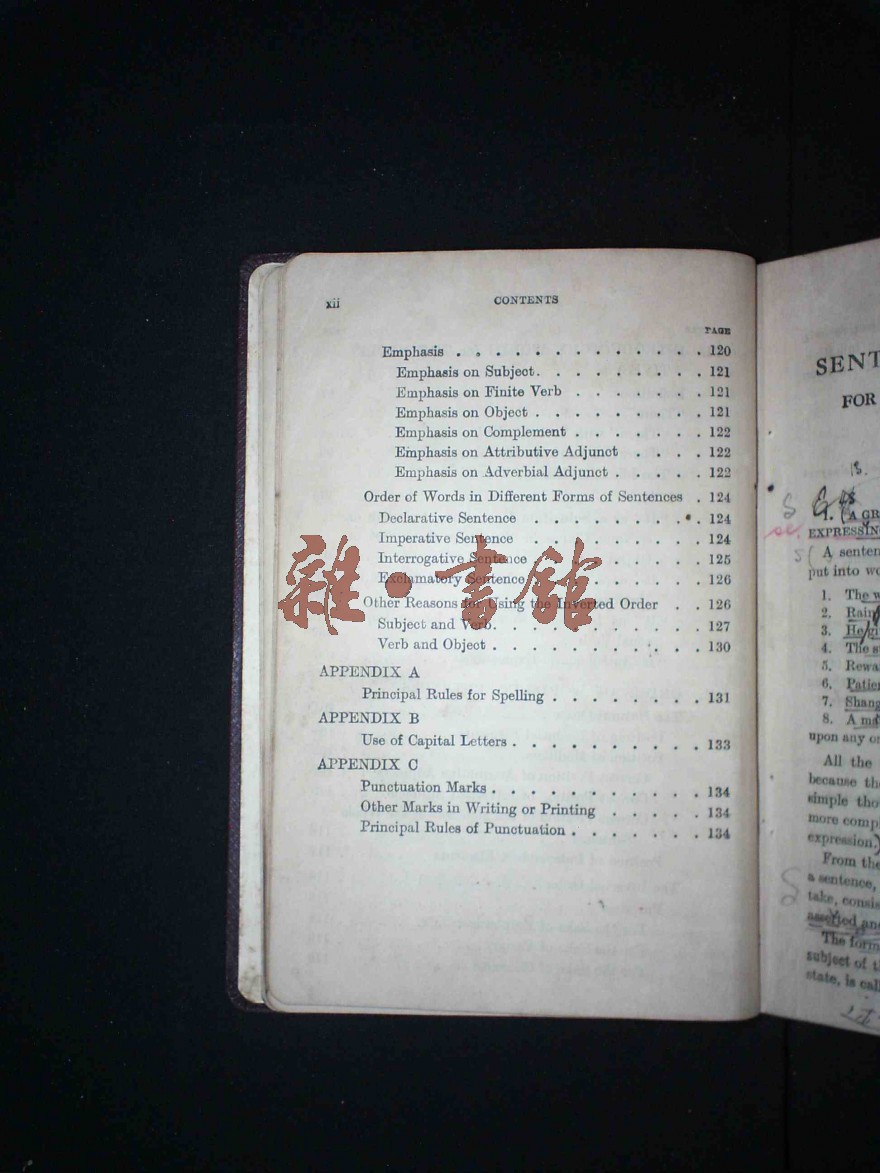 xii CONTENTS
PAGE
Emphasis . . . . . . . . . . . . . 120
Emphasis on Subject . . . . . . . . . 121
Emphasis on Finite Verb . . . . . . . 121
Emphasis on Object . . . . . . . . . 121
Emphasis on Complement . . . . . . . 122
Emphasis on Attributive Adjunct . . . . 122
Emphasis on Adverbial Adjunct . . . . . 122
Order of Words in Different Forms of Sentences . 124
Declarative Sentence . . . . . . . . . 124
Imperative Sentence . . . . . . . . . 124
Interrogative Sentence . . . . . . . . 125
Exclamatory Sentence . . . . . . . . 126
Other Reasons for Using the Inverted Order . . 126
Subject and Verb . . . . . . . . . . . 127
Verb and Object . . . . . . . . . . . 130
APPENDIX A
Principal Rules for Spelling . . . . . . . . 131
APPENDIX B
Use of Capital Letters . . . . . . . . . . 133
APPENDIX C
Punctuation Marks . . . . . . . . . . . 134
Other Marks in Writing or Printing . . . . . 134
Principal Rules of Punctuation . . . . . . . 134
雜·書館
SENT
FOR
1. (A GR
EXPRESSING
A senten
put into wo
1. The w
2. Rain
3. He gi
4. The s
5. Rewa
6. Patie
7. Shang
8. A ma
upon any o
All the
because th
simple tho
more comp
expression.)
From the
a sentence,
take, consis
asserted an
The form
subject of t
state, is cal